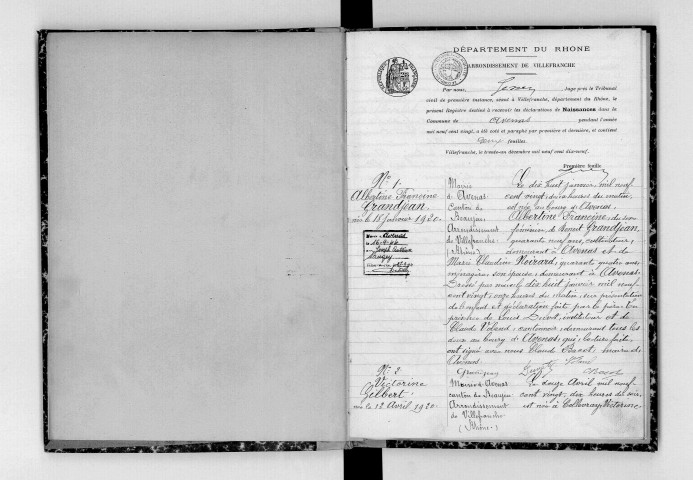 DÉPARTEMENT DU RHÔNE
ARRONDISSEMENT DE VILLEFRANCHE
Par nous, juge près le Tribunal
civil de première instance, séant à Villefranche, département du Rhône, le
présent Registre destiné à recevoir les déclarations de Naissances dans la
Commune de Avenas pendant l'année
mil neuf cent vingt, a été coté et paraphé par première et dernière, et contient
feuilles.
Villefranche, le trente-un décembre mil neuf cent dix-neuf.
Première feuille
N° 1.
Albertine Francine
Grandjean
née le 18 Janvier 1920.
Mairie
d'Avenas.
Canton de
Beaujeu
Arrondissement
de Villefranche
(Rhône)
Le dix huit janvier mil neuf
cent vingt, heures du matin,
est née au bourg d'Avenas,
Albertine Francine, du sexe
féminin, de Benoit Grandjean,
quarante neuf ans, cultivateur,
domicilié à Avenas et de
Marie Claudine Noirard, quarante quatre ans,
ménagère, son épouse, demeurant à Avenas.
Dressé par nous le dix huit janvier mil neuf
cent vingt, onze heures du matin, sur présentation
de l'enfant et déclaration faite par le père en
présence de Louis instituteur et de
Claude Voland, cantonnier, demeurant tous les
deux au bourg d'Avenas, qui, lecture faite,
ont signé avec nous Claude Bacot, maire de
Avenas.
Grandjean Bacot
N° 2
Victorine
Gelbert
née le 12 Avril 1920.
Mairie d'Avenas
canton de Beaujeu
Arrondissement
de Villefranche
(Rhône)
Le douze Avril mil neuf
cent vingt, dix heures du soir,
est née à Victorine